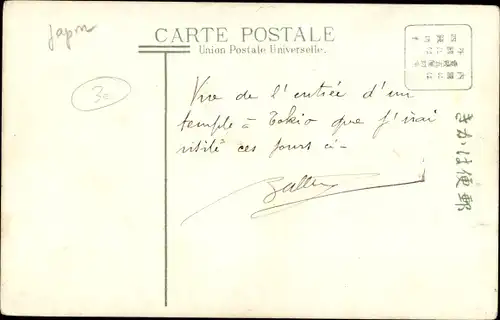 Japon
CARTE POSTALE
Union Postale Universelle.
30
Vue de l'entrée d'un
temple à Tokio que j'irai
visité ces jours ci-
きかは便郵